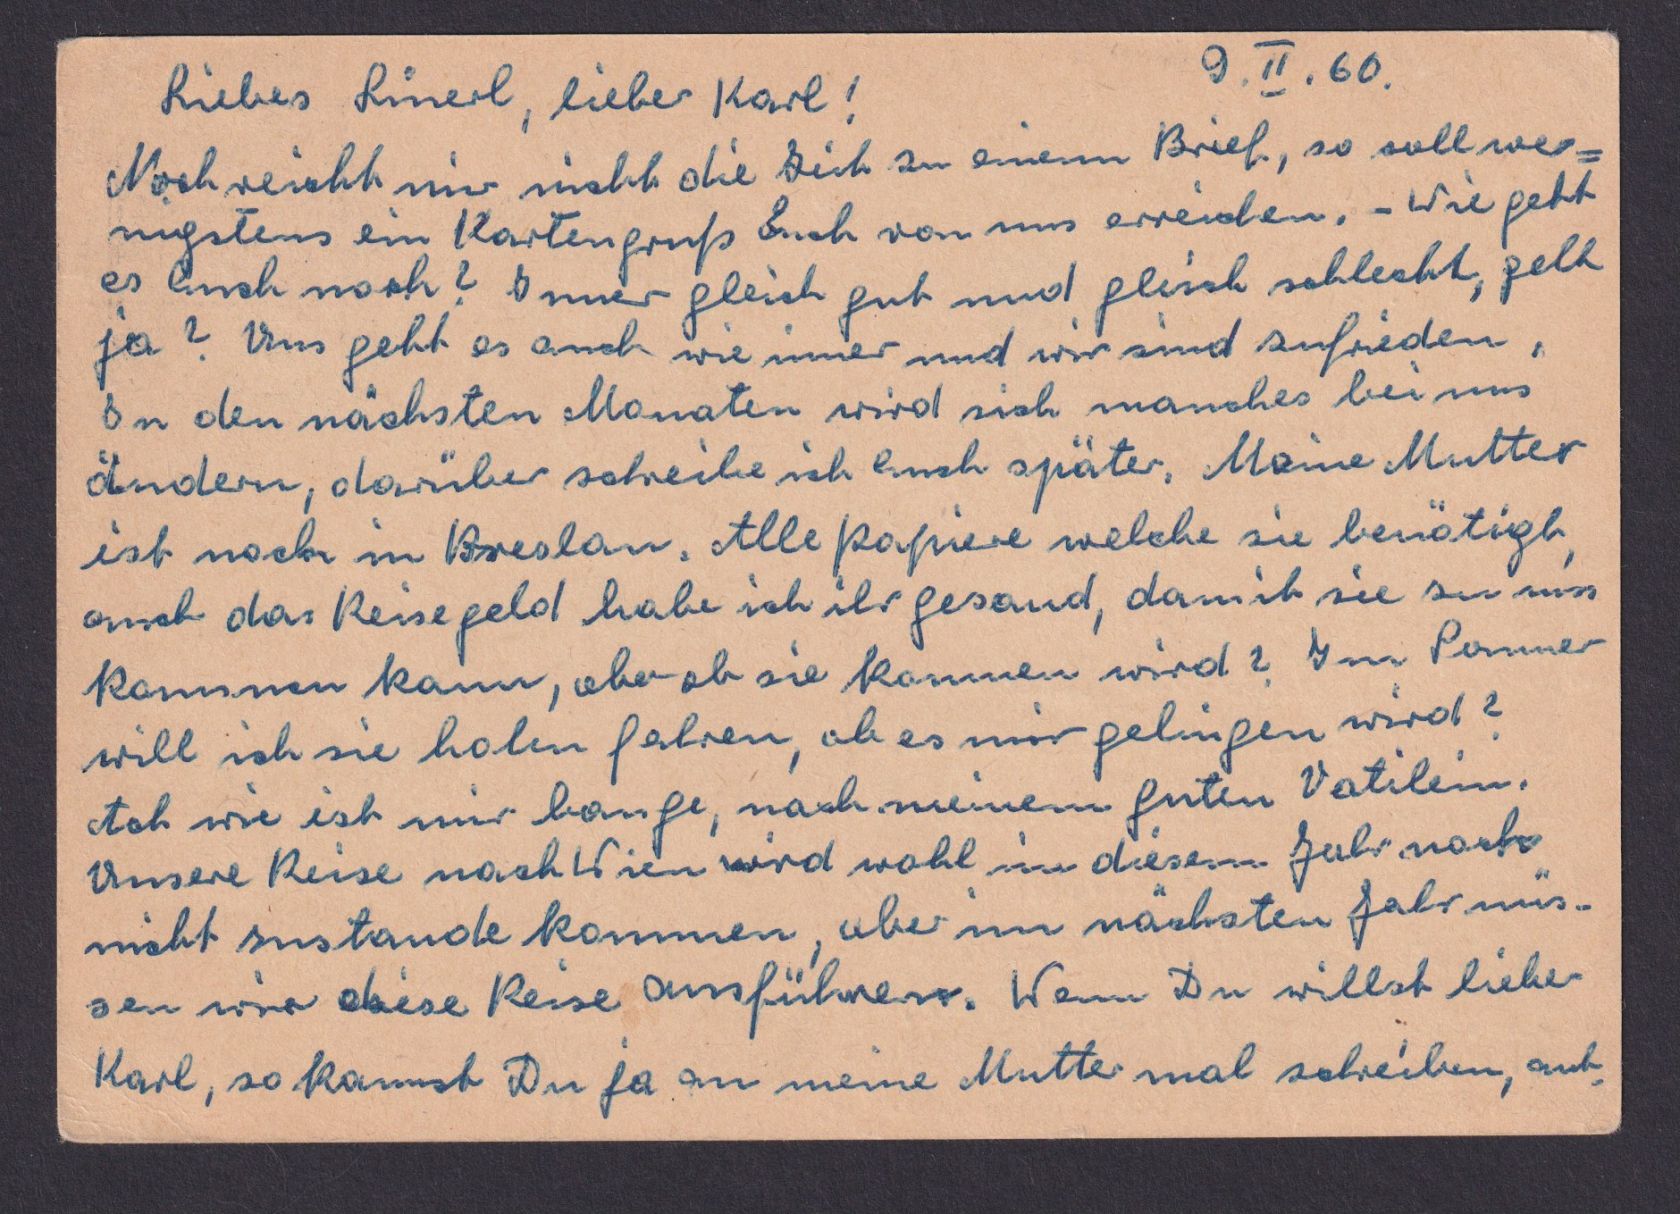 9.II.60.
Liebes Linerl, lieber Karl!
Noch reicht mir nicht die Zeit zu einem Brief, so soll we=
nigstens ein Kartengruß Euch von uns erreichen. - Wie geht
es Euch noch? Immer gleich gut und gleich schlecht, gelt
ja? Uns geht es auch wie immer und wir sind zufrieden.
In den nächsten Monaten wird sich manches bei uns
ändern, darüber schreibe ich Euch später. Meine Mutter
ist noch in Breslau. Alle Papiere welche sie benötigt,
auch das Reisegeld habe ich ihr gesand, damit sie zu uns
kommen kann, aber ob sie kommen wird? Im Sommer
will ich sie holen fahren, ob es mir gelingen wird?
Ach wie ist mir bange, nach meinem guten Vatilein.
Unsere Reise nach Wien wird wohl in diesem Jahr noch
nicht zustande kommen, aber im nächsten Jahr müs-
sen wir diese Reise ausführen. Wenn Du willst lieber
Karl, so kannst Du ja an meine Mutter mal schreiben, ant-